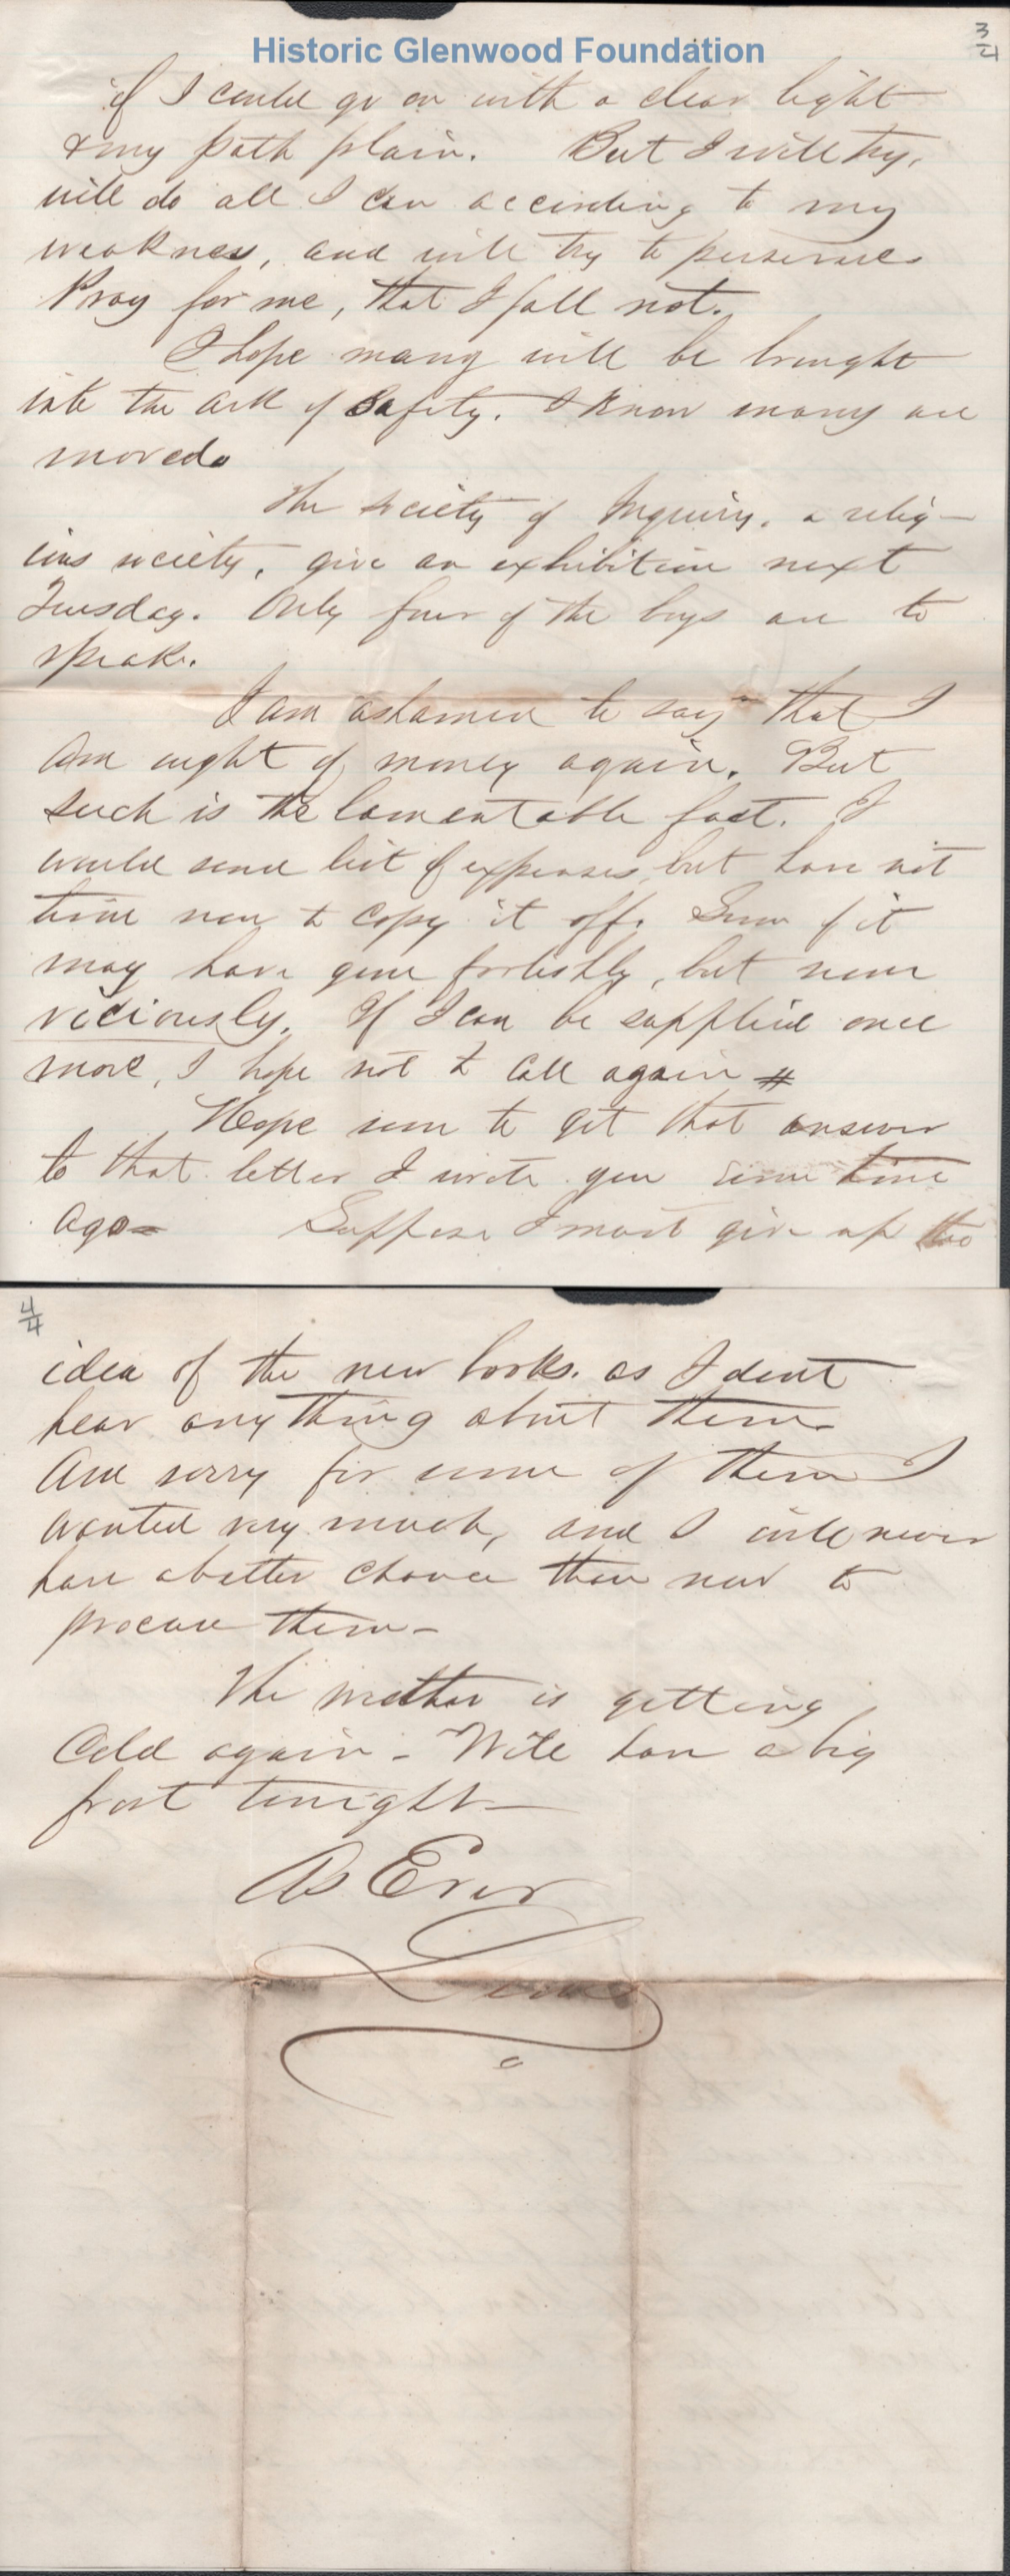 Historic Glenwood Foundation
3/4
if I could go on with a clear light
& my path plain. But I will try,
will do all I can according to my
weakness, and will try to persevere
Pray for me, that I fall not.
I hope many will be brought
into the ark of safety. I know many are
moved
The Society of Inquiry, a relig-
ious society, give an exhibition next
Tuesday. Only four of the boys are to
speak.
I am ashamed to say that I
am out of money again. But
such is the lamentable fact. I
would send list of expenses, but have not
time now to copy it off. Some of it
may have gone foolishly, but none
viciously. If I can be supplied once
more, I hope not to call again
Hope soon to get that answer
to that letter I wrote you some time
ago - Suppose I must give up the
4/4
idea of the new books. as I dont
hear any thing about them
Am sorry for some of them I
wanted very much, and I will never
have a better chance than now to
procure them -
The weather is getting
Cold again - Will have a big
frost tonight -
As Ever